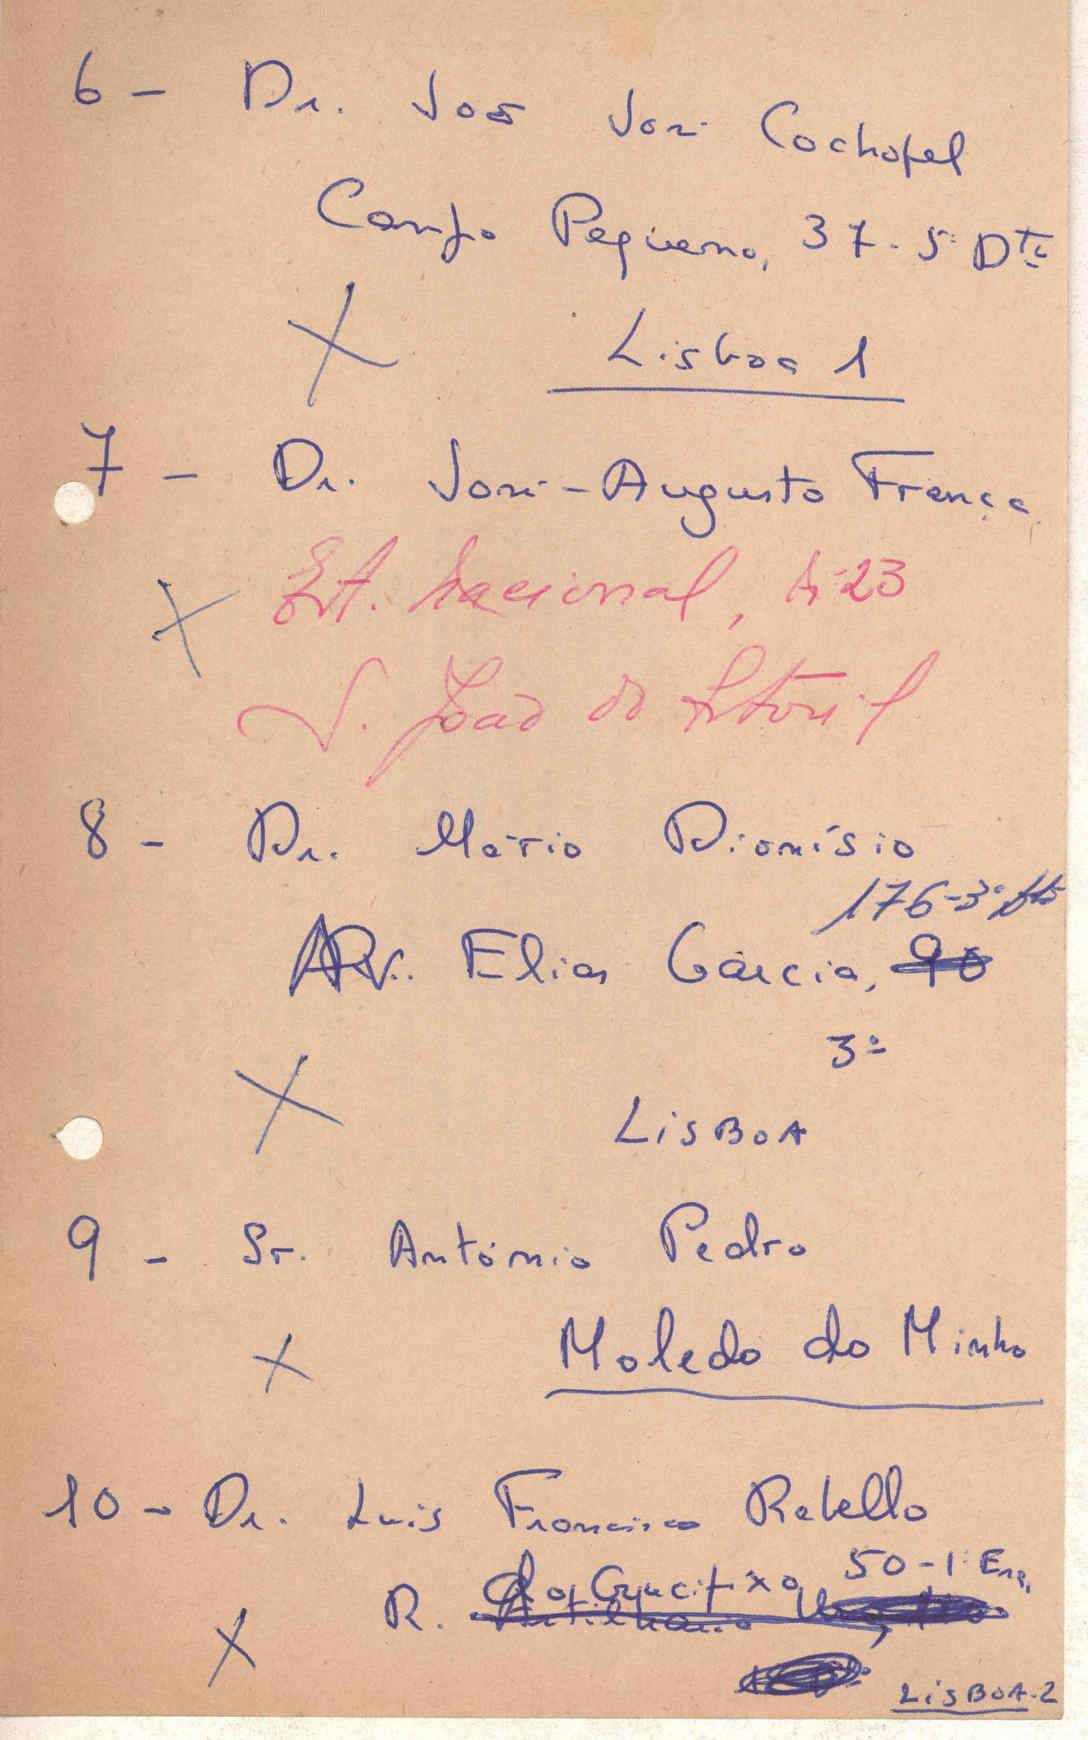 6 - Dr. João José Cochofel
Campo Pequeno, 37-5º Dtº
Lisboa 1
7 - Dr. José-Augusto França
Est. Nacional, 23
S. João do Estoril
8 - Dr. Mário Dionísio
176-3º dtº
Av. Elias Garcia, 90
3º
LISBOA
9 - Sr. António Pedro
Moledo do Minho
10 - Dr. Luis Francisco Rebello
50-1º Esq.
R. do Crucifixo
LISBOA-2